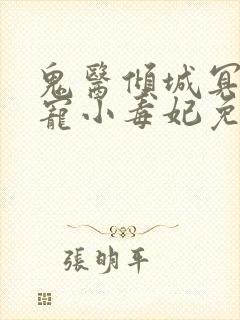 鬼醫傾城冥
寵小毒妃免
張明平